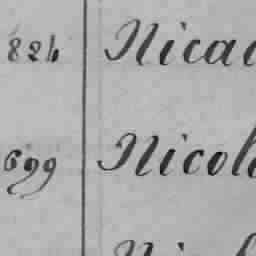 824 Nicac
699 Nicol